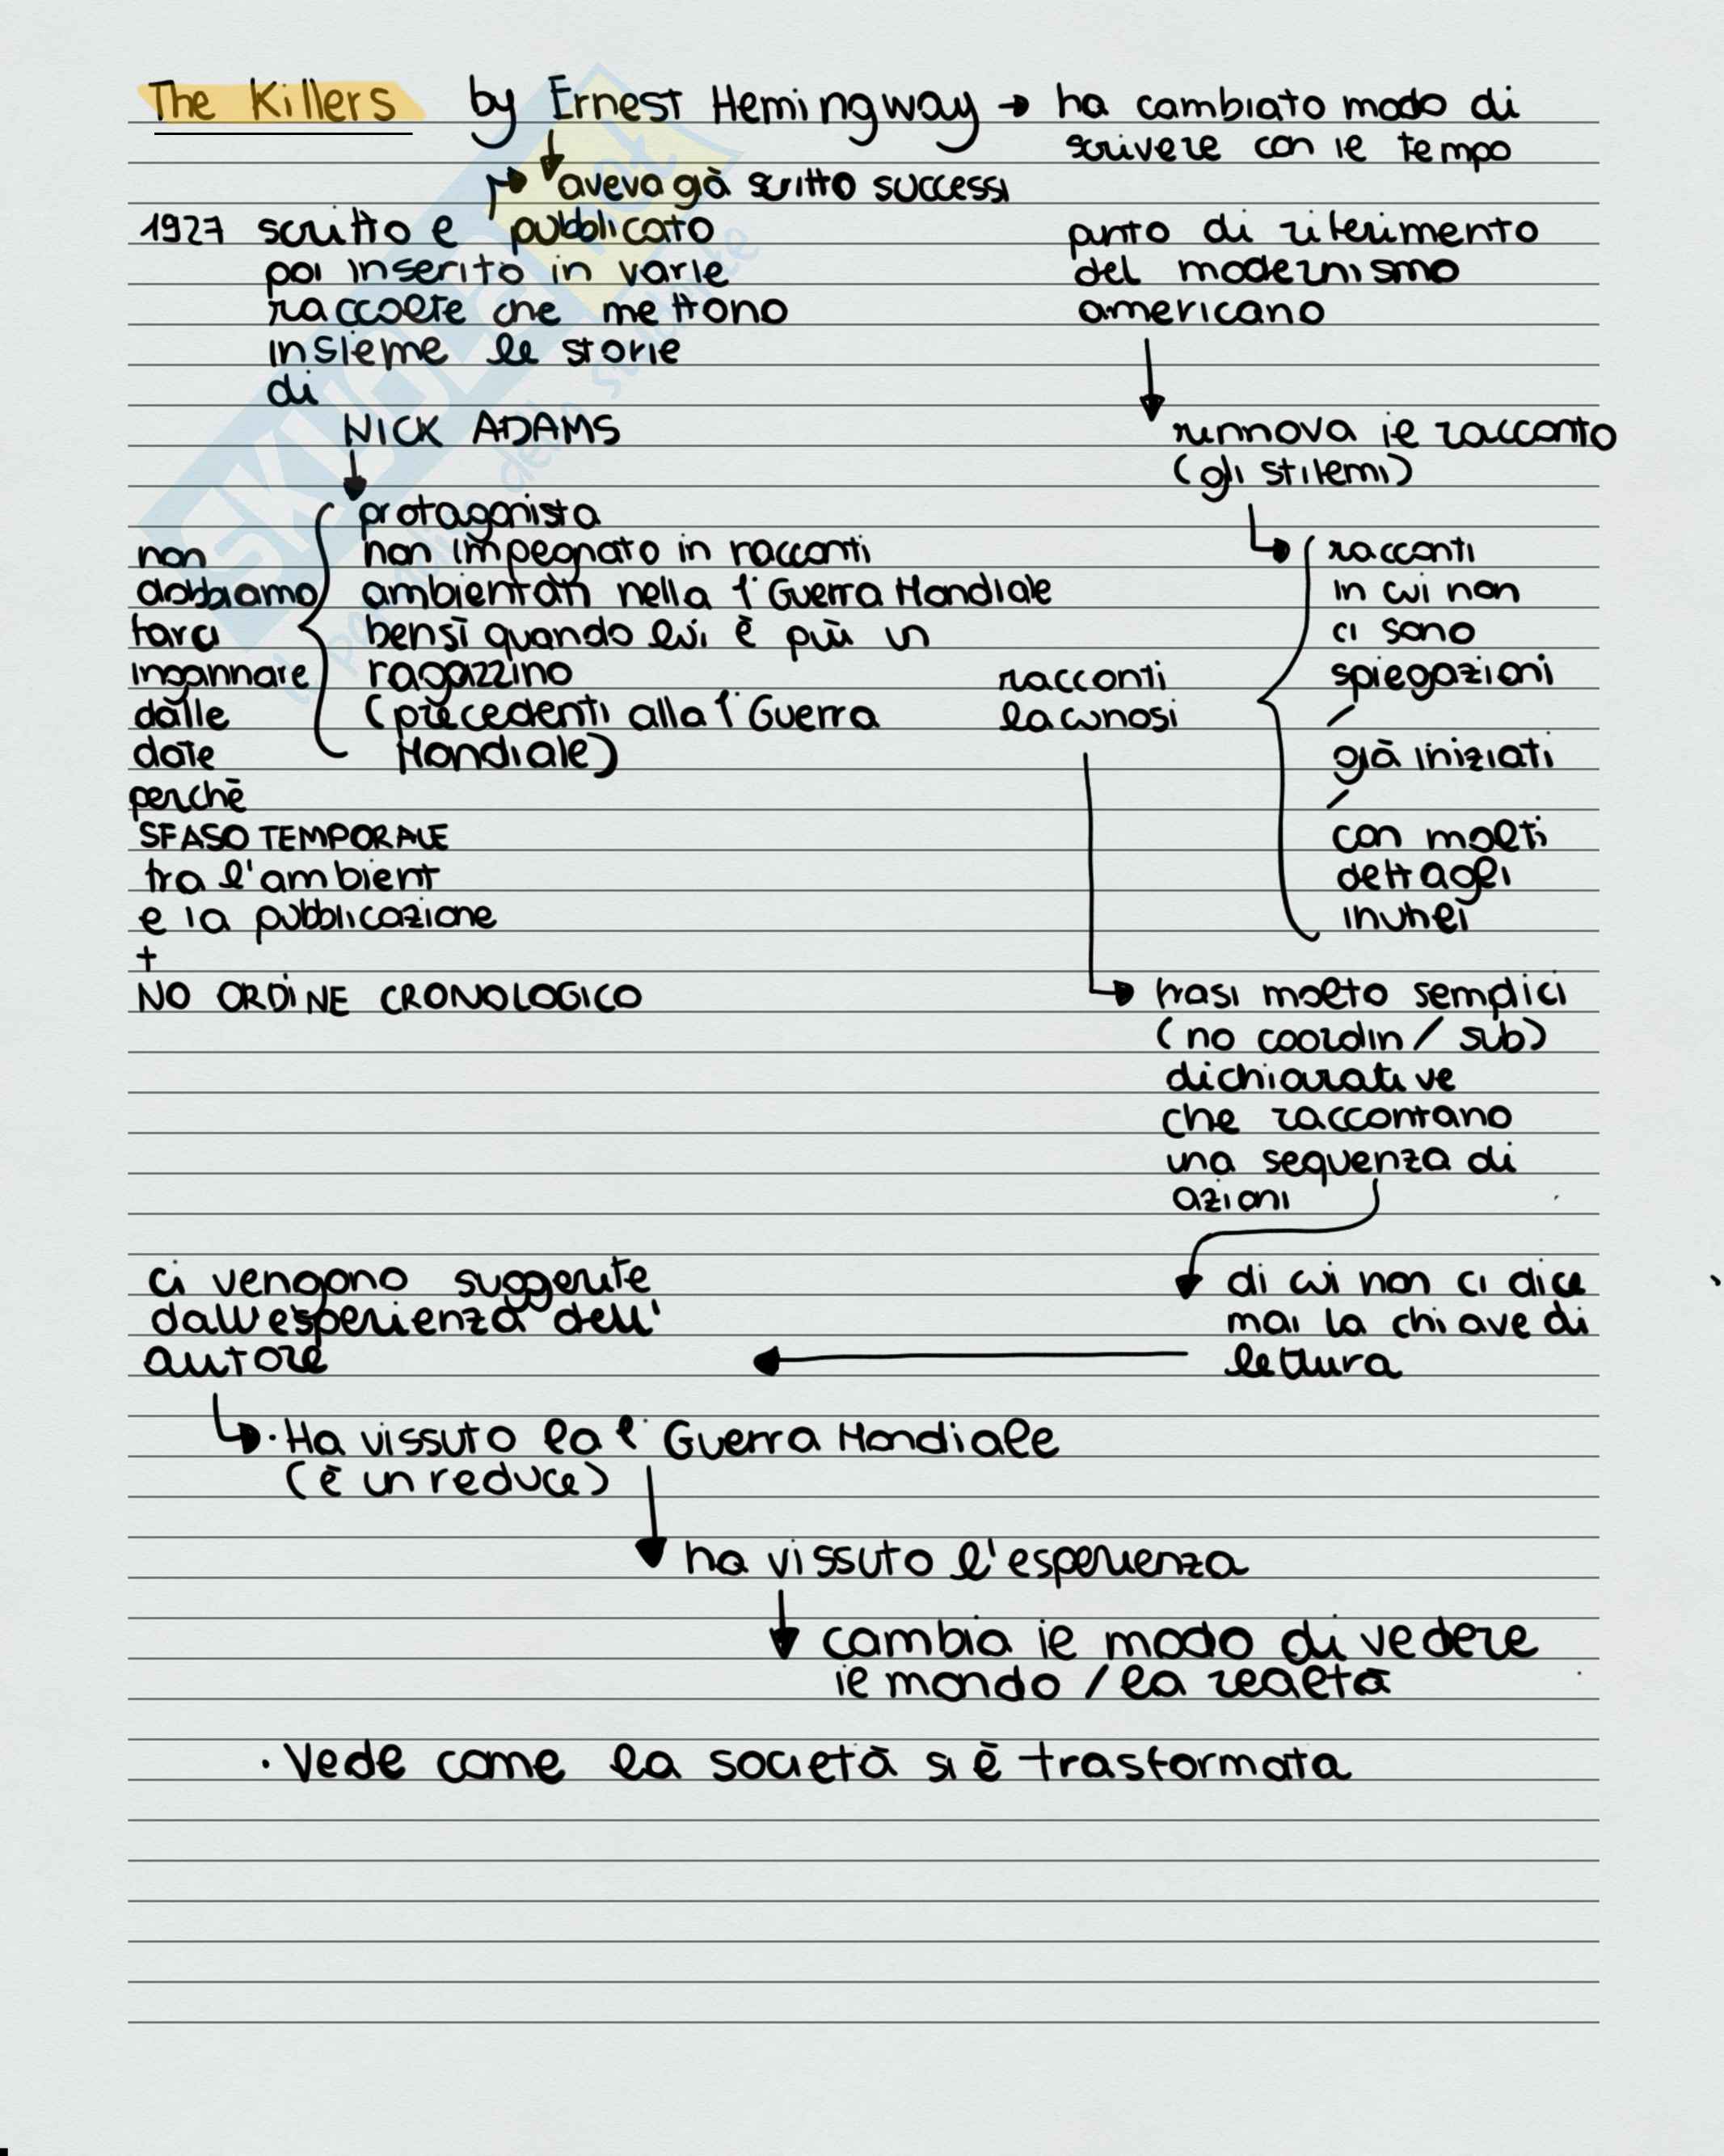 The Killers by Ernest Hemingway → ha cambiato modo di
scrivere con il tempo
aveva già scritto successi
1927 scritto e pubblicato
poi inserito in varie
raccolte che mettono
insieme le storie
di
NICK ADAMS
punto di riferimento
del modernismo
americano
rinnova il racconto
(gli stilemi)
protagonista
non impegnato in racconti
ambientati nella 1ª Guerra Mondiale
bensì quando lui è più un
ragazzino
(precedenti alla 1ª Guerra
Mondiale)
non
dobbiamo
farci
ingannare
dalle
date
perchè
SFASO TEMPORALE
tra l'ambient
e la pubblicazione
+
NO ORDINE CRONOLOGICO
racconti
in cui non
ci sono
spiegazioni
/
già iniziati
/
con molti
dettagli
inutili
racconti
lacunosi
frasi molto semplici
(no coordin / sub)
dichiarative
che raccontano
una sequenza di
azioni
di cui non ci dice
mai la chiave di
lettura
ci vengono suggerite
dall'esperienza dell'
autore
· Ha vissuto la 1ª Guerra Mondiale
(è un reduce)
ha vissuto l'esperienza
cambia il modo di vedere
il mondo / la realtà
· Vede come la società si è trasformata
SKUOLA.net